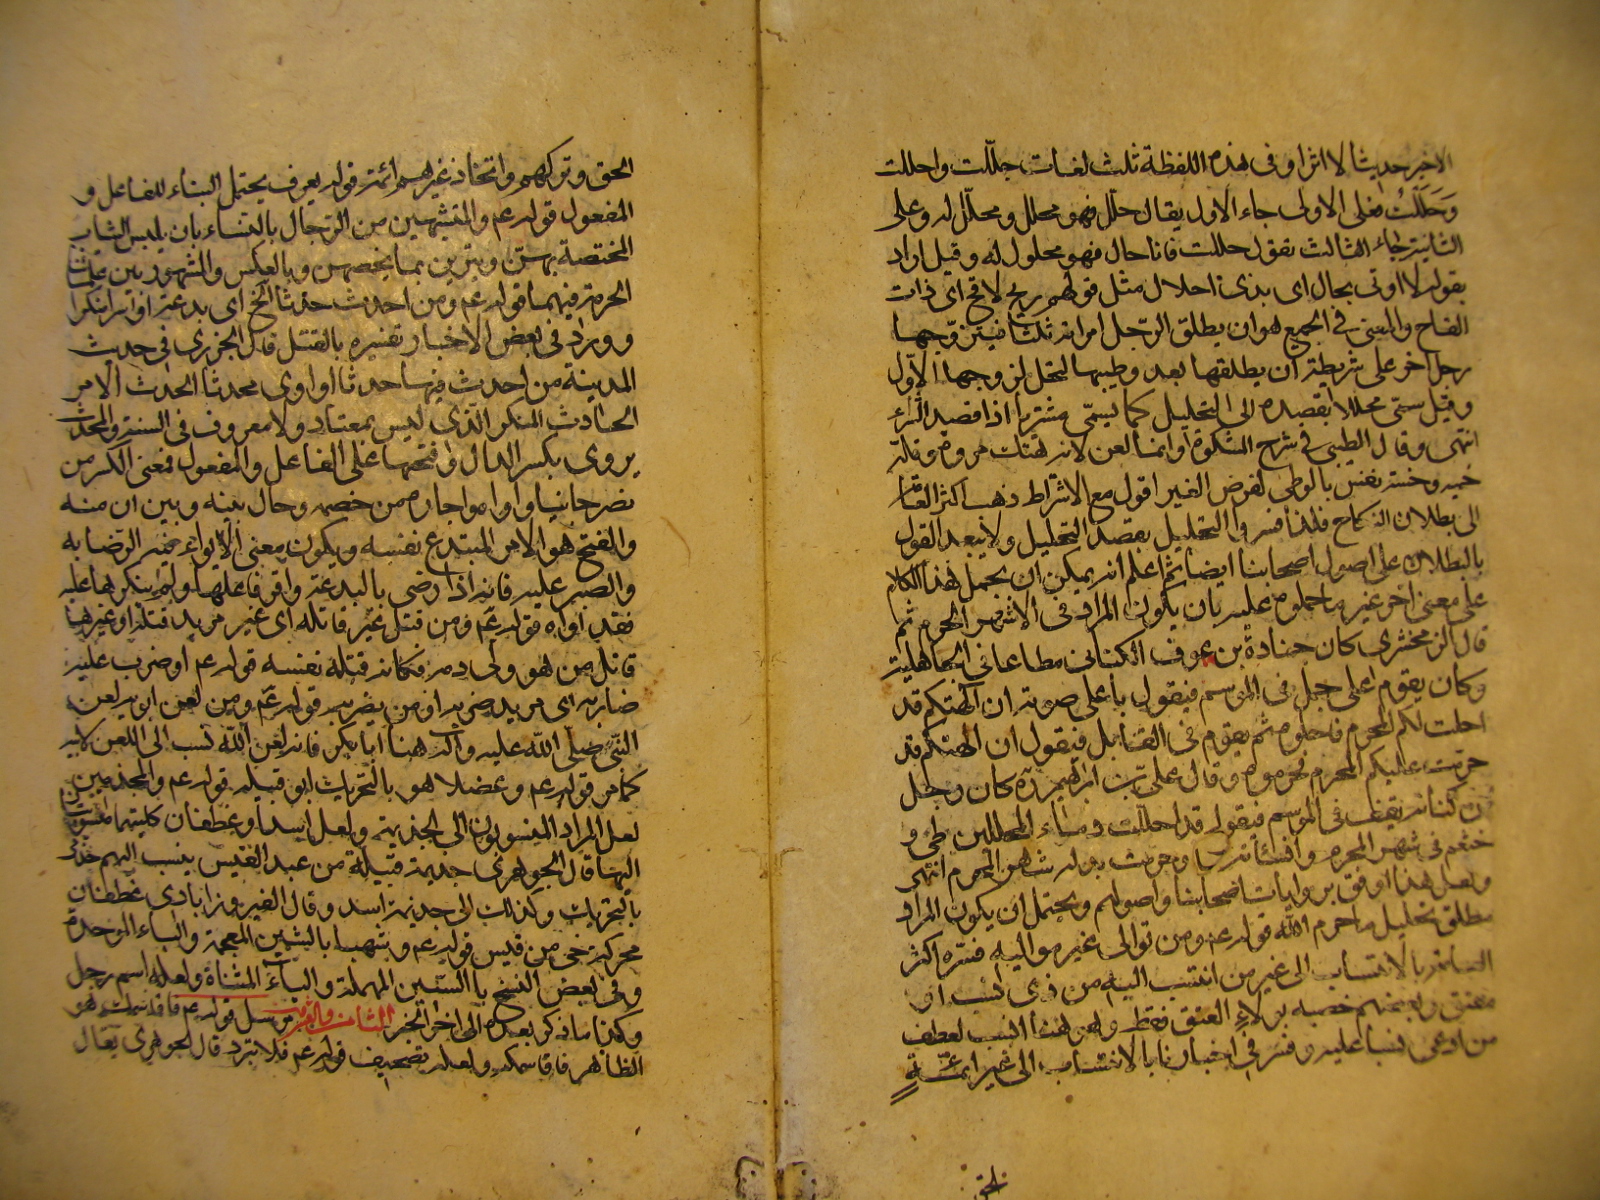 الاخير حديثا لا اثرا وفى هذه اللفظة ثلث لغات حلّلت واحللت
وَحَلَلْتُ فعلى الاولى جاء الاول يقال حلّل فهو محلل ومحلّل له وعلى
الثانية جاء الثالث تقول حللت فانا حال فهو محلول له وقيل اراد
بقوله لا اوتى بحال اى بذى احلال مثل قولهم ريح لاقح اى ذات
القاح والمعنى فى الجميع هو ان يطلق الرّجل امراته ثلثا فيتزوّجها
رجل اخر على شريطة ان يطلقها بعد وطيها لتحل لزوجها الاوّل
وقيل سمّى محللا بقصده الى التحليل كما يسمّى مشتريا اذا قصد الشراء
انتهى وقال الطيبى فى شرح المشكوة وانما لعن لانه هتك مروة وقلة
حمية وخسة نفس بالوطى لغرض الغير اقول مع الاشتراط ذهب اكثر العامة
الى بطلان النكاح فلذا فسروا التحليل بقصد التحليل ولا يبعد القول
بالبطلان على اصول اصحابنا ايضا ثم اعلم انه يمكن ان يحمل هذا الكلام
على معنى اخر غير ما حملوه عليه بان يكون المراد فى الاشهر الحرم ثم
قال الزمخشرى كان جنادة بن عوف الكنانى مطاعا فى الجاهلية
وكان يقوم على جمل فى الموسم فيقول باعلى صوته ان الهتكم قد
احلت لكم المحرم فاحلوه ثم يقوم فى القابل فيقول ان الهتكم قد
حرمت عليكم المحرم فحرموه وقال على بن ابراهيم ره كان رجل
من كنانة يقف فى الموسم فيقول قد احللت دماء المحللين طى و
خثعم فى شهر المحرم وانسأته وحرمت بدله شهر المحرم انتهى
ولعل هذا اوفق بروايات اصحابنا واصولهم ويحتمل ان يكون المراد
مطلق تحليل ما حرم الله قوله عم ومن توالى غير مواليه فسّره اكثر
العامة بالانتساب الى غير من انتسب اليه من ذى نسب او
معتق وبعضهم خصه بولاء العتق فقط وهو هنا انسب لعطف
من ادعى نسبا عليه وفسر فى اخبارنا بالانتساب الى غير ائمّة
الحق وتركهم واتخاذ غيرهم ائمة قوله يعرف يحتمل البناء للفاعل و
المفعول قوله عم والمتشبهين من الرّجال بالنساء بان يلبس الثياب
المختصة بهنّ ويتزين بما يخصهن وبالعكس والمشهور بين علمائنا
الحرمة فيهما قوله عم ومن احدث حدثا الخ اى بدعة او امرا منكرا
وورد فى بعض الاخبار تفسيره بالقتل قال الجزرى فى حديث
المدينة من احدث فيها حدثا او اوى محدثا الحدث الامر
الحادث المنكر الذى ليس بمعتاد ولا معروف فى السنة والمحدث
يروى بكسر الدال وفتحها على الفاعل والمفعول فمعنى الكسر من
نصر جانيا واواه واجاره من خصمه وحال بينه وبين ان يقتص منه
والفتح هو الامر المبتدع نفسه ويكون معنى الايواء فيه الرضا به
والصبر عليه فانه اذا رضى بالبدعة واقر فاعلها ولم ينكرها عليه
فقد اواه قوله عم ومن قتل غير قاتله اى غير مريد قتله او غير
قاتل من هو ولى دمه فكانه قتله نفسه قوله عم او ضرب غير
ضاربه اى مريد ضربه او من يضربه قوله عّم ومن لعن ابويه لعن
النبّى صلى الله عليه واله هنا ابا بكر فانه لعن الله تسب الى اللعن لابيه
كما مر قوله عم وعضلا هو بالتحريك ابو قبيله قوله عم والمجذمين
لعل المراد المنسوبون الى الجذيمة ولعل اسدا وغطفان كليتهما منسوب
اليها قال الجوهرى جذيمة قبيلة من عبد القيس ينسب اليهم جذمى
بالتحريك وكذلك الى جذيمة اسد وقال الفيروزابادى غطفان
محركة حى من قيس قوله عم وشهبا بالشين المعجمة والباء الموحدة
وفى بعض النسخ بالسّين المهملة والياء المثناة ولعله اسم رجل
وكذا ما ذكر بعده الى اخر الخبر الثامن والعشرون مرسل قوله عم فاقد سكت هو
الظاهر فاقاسمكه ولعله تصحيف قوله عم فلا تبرد قال الجوهرى يقال
الحق